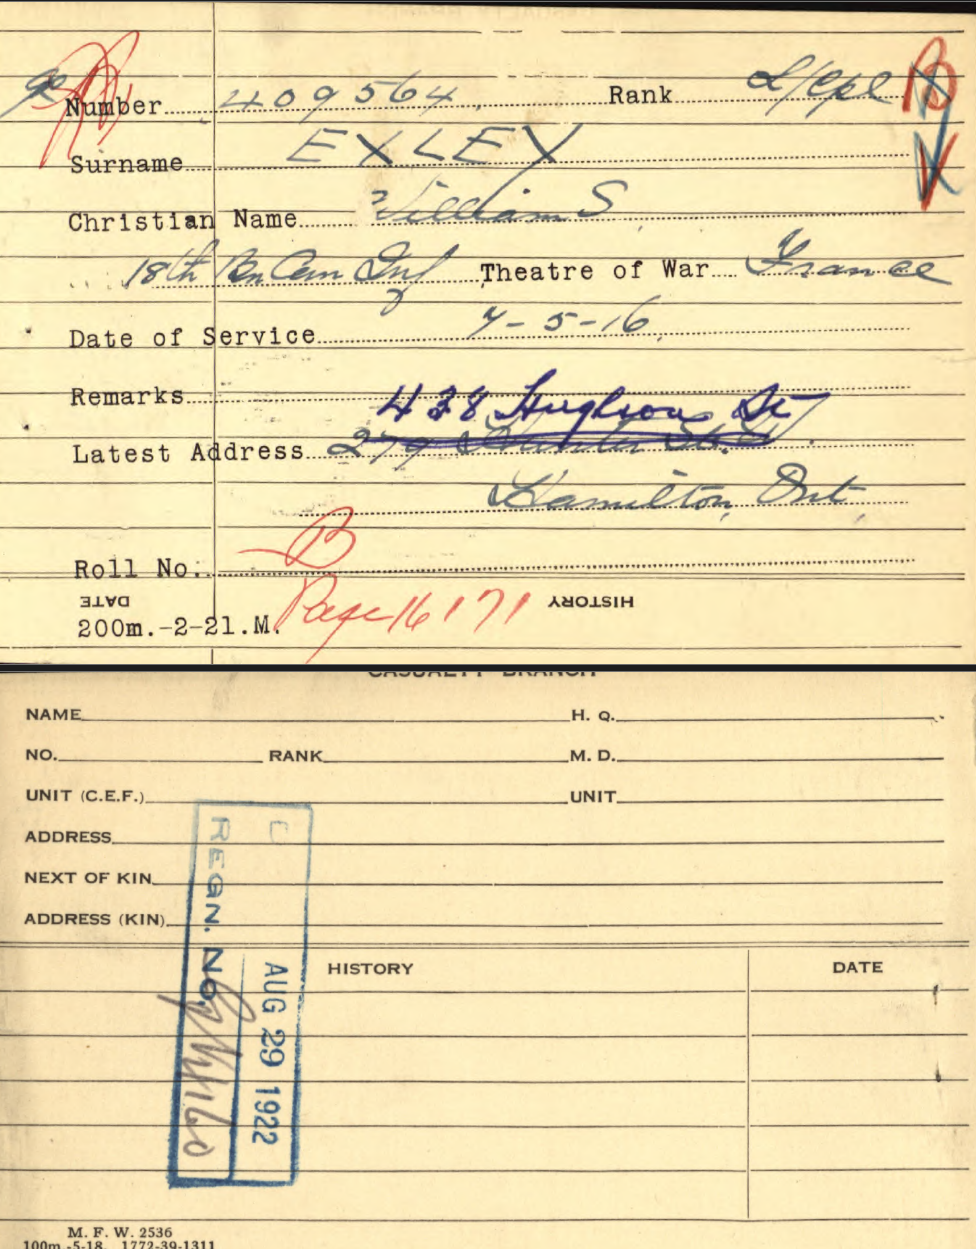 Number 409564. Rank L/Cpl B
Surname EXLEY
Christian Name William S
18th Bn Can Inf Theatre of War France
Date of Service 7-5-16
Remarks
438 Hughson St
Latest Address 279 Hunter St. W.
Hamilton, Ont.
Roll No. B
DATE HISTORY
Page 16171
200m.-2-21.M.
CASUALTY BRANCH
NAME H. Q.
NO. RANK M. D.
UNIT (C.E.F.) UNIT
ADDRESS
NEXT OF KIN
ADDRESS (KIN)
HISTORY DATE
C
REGN. NO.
AUG 29 1922
M. F. W. 2536
100m.-5-18. 1772-39-1311